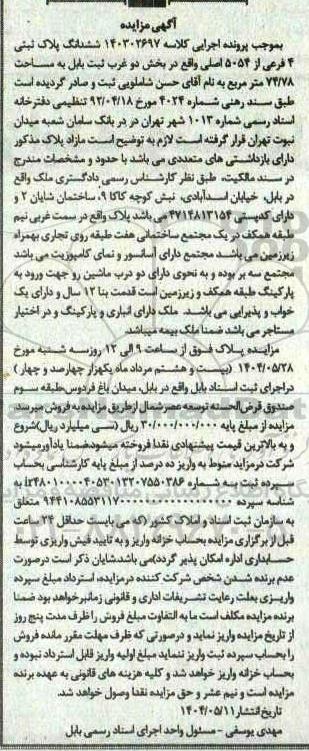 آگهی مزایده
بموجب پرونده اجرایی کلاسه ۱۴۰۳۰۲۶۹۷ ششدانگ پلاک ثبتی
۴ فرعی از ۵۰۵۴ اصلی واقع در بخش دو غرب ثبت بابل به مساحت
۷۴/۷۸ متر مربع به نام آقای حسن شاملویی ثبت و صادر گردیده است
طبق سند رهنی شماره ۴۰۲۴ مورخ ۹۲/۰۴/۱۸ تنظیمی دفترخانه
اسناد رسمی شماره ۱۰۱۳ شهر تهران در در بانک سامان شعبه میدان
نبوت تهران قرار گرفته است لازم به توضیح است مازاد پلاک مذکور
دارای بازداشتی های متعددی می باشد با حدود و مشخصات مندرج
در سند مالکیت، طبق نظر کارشناس رسمی دادگستری ملک واقع
در بابل، خیابان اسدآبادی، نبش کوچه کاکا ۹، ساختمان شایان ۲ و
دارای کدپستی ۴۷۱۴۸۱۳۱۵۴ می باشد پلاک واقع در سمت غربی نیم
طبقه همکف در یک مجتمع ساختمانی هفت طبقه روی تجاری بهمراه
زیرزمین می باشد مجتمع دارای آسانسور و نمای کامپوزیت می باشد
مجتمع سه بر بوده و به نحوی دارای دو درب ماشین رو جهت ورود به
پارکینگ طبقه همکف و زیرزمین است قدمت بنا ۱۲ سال و دارای یک
خواب و پذیرایی می باشد. ملک دارای انباری و پارکینگ و در اختیار
مستاجر می باشد ضمنا ملک بیمه میباشد
مزایده پلاک فوق از ساعت ۹ الی ۱۲ روز سه شنبه مورخ
۱۴۰۴/۰۵/۲۸ (بیست و هشتم مرداد ماه یکهزار چهارصد و چهار)
دراجرای ثبت اسناد بابل واقع در بابل، میدان باغ فردوس،طبقه سوم
صندوق قرض الحسنه توسعه عصرشمال ازطریق مزایده به فروش میرسد.
مزایده از مبلغ پایه ۳۰/۰۰۰/۰۰۰/۰۰۰ ریال (سی میلیارد ریال)شروع
و به بالاترین قیمت پیشنهادی نقدا فروخته میشودضمنا یادآورمیشود
شرکت درمزاید منوط به واریز ده درصد از مبلغ پایه کارشناسی بحساب
سپرده ثبت به شماره
شناسه سپرده متعلق
به سازمان ثبت اسناد و املاک کشور (که می بایست حداقل ۲۴ ساعت
قبل از برگزاری مزایده بحساب خزانه واریز و به تایید فیش واریزی توسط
حسابداری اداره امکان پذیر گردد)می باشد،شایان ذکر است درصورت
عدم برنده شدن شخص شرکت کننده درمزایده، استرداد مبلغ سپرده
واریزی بعلت رعایت تشریفات اداری و قانونی زمانبرخواهد بود ضمنا
برنده مزایده مکلف است ما به التفاوت مبلغ فروش را ظرف مدت پنج روز
از تاریخ مزایده واریز نماید و درصورتی که ظرف مهلت مقرر مانده فروش
را بحساب سپرده ثبت واریز ننماید مبلغ اولیه واریز قابل استرداد نبوده و
بحساب خزانه واریز خواهد شد و کلیه هزینه های قانونی به عهده برنده
مزایده است و نیم عشر و حق مزایده نقدا وصول خواهد شد.
تاریخ انتشار ۱۴۰۴/۰۵/۱۱
مهدی یوسفی - مسئول واحد اجرای اسناد رسمی بابل